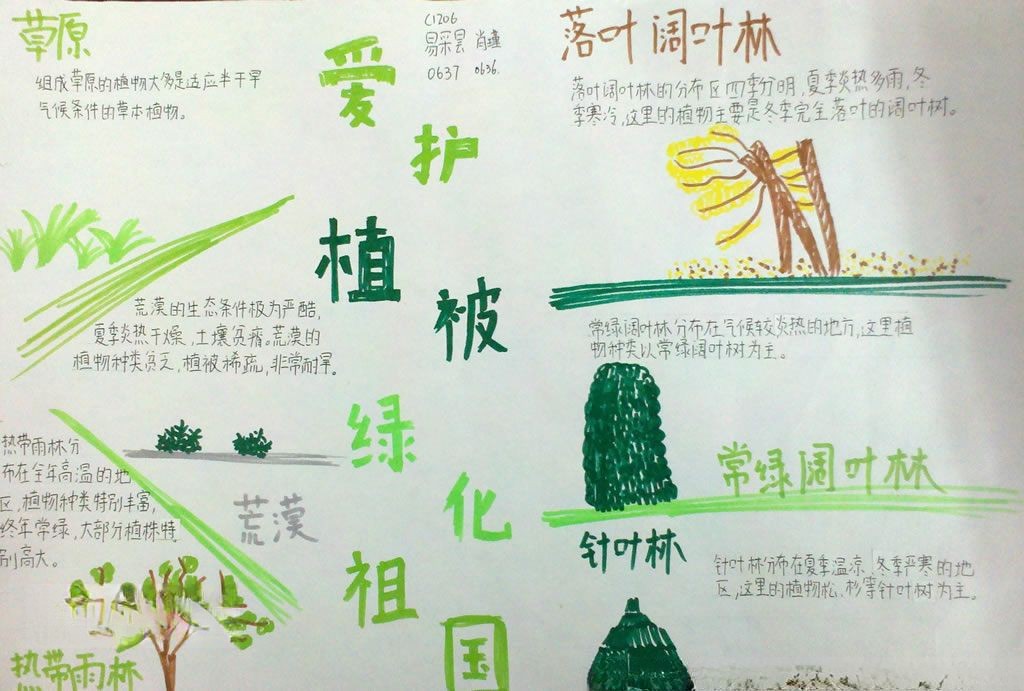 草原
组成草原的植物大多是适应半干旱
气候条件的草本植物。
爱
护
植
被
绿
化
祖
国
C1206
易采昙 肖瑾
0637 0636.
落叶阔叶林
落叶阔叶林的分布区四季分明,夏季炎热多雨,冬
季寒冷,这里的植物主要是冬季完全落叶的阔叶树。
荒漠的生态条件极为严酷,
夏季炎热干燥,土壤贫瘠。荒漠的
植物种类贫乏,植被稀疏,非常耐旱。
荒漠
常绿阔叶林分布在气候较炎热的地方,这里植
物种类以常绿阔叶树为主。
常绿阔叶林
热带雨林分
布在全年高温的地
区,植物种类特别丰富,
终年常绿,大部分植株特
别高大。
热带雨林
针叶林
针叶林分布在夏季温凉、冬季严寒的地
区,这里的植物松、杉等针叶树为主。